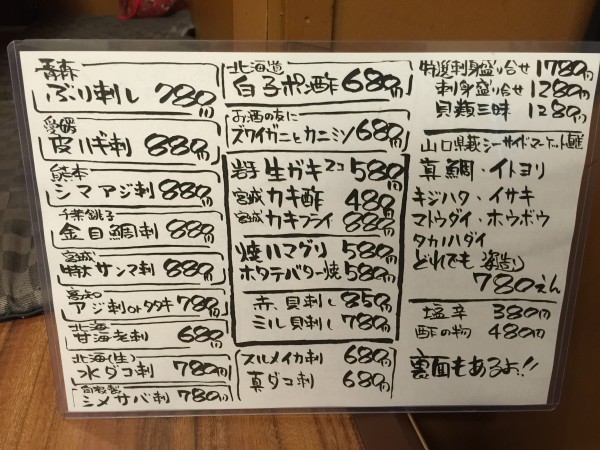 青森
ぶり刺し 780円
愛媛
皮ハギ刺 880円
熊本
シマアジ刺 880円
千葉銚子
金目鯛刺 880円
宮城
特大サンマ刺 880円
高知
アジ刺orタタキ 780円
北海
甘海老刺 680円
北海(生)
水ダコ刺 780円
自家製
シメサバ刺 780円
北海道
白子ポン酢 680円
お酒の友に
ズワイガニとカニミソ 680円
岩手 生ガキ2コ 580円
宮城 カキ酢 480円
宮城 カキフライ 880円
焼ハマグリ 580円
ホタテバター焼 580円
赤貝刺し 850円
ミル貝刺し 780円
スルメイカ刺 680円
真ダコ刺 680円
特選刺身盛り合せ 1780円
刺身盛り合せ 1280円
貝類三昧 1280円
山口県萩シーサイドマーケット直送
真鯛・イトヨリ
キジハタ・イサキ
マトウダイ・ホウボウ
タカノハダイ
どれでも
780えん
塩辛 380円
酢の物 480円
裏面もあるよ!!